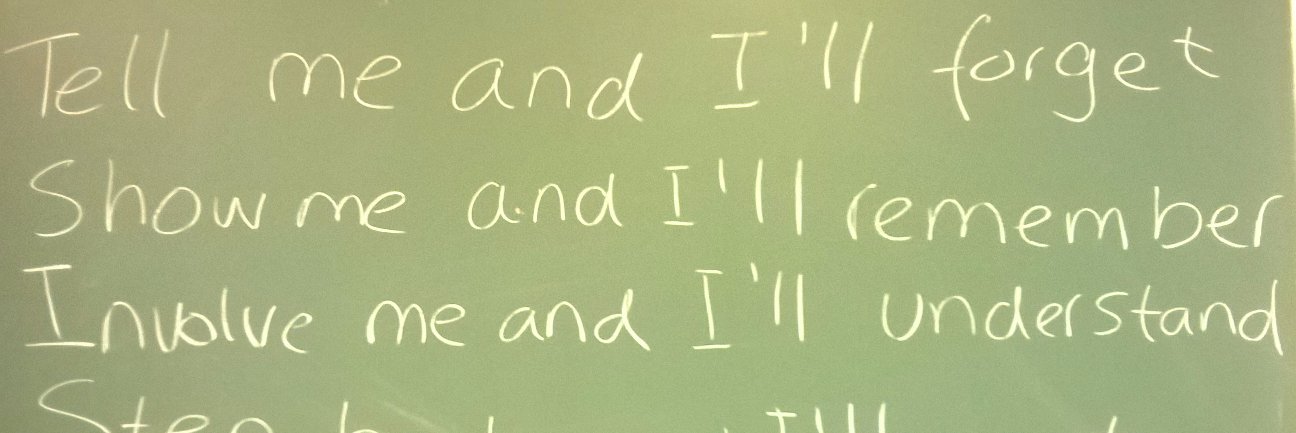 Tell me and I'll forget
Show me and I'll remember
Involve me and I'll understand
Step I'll